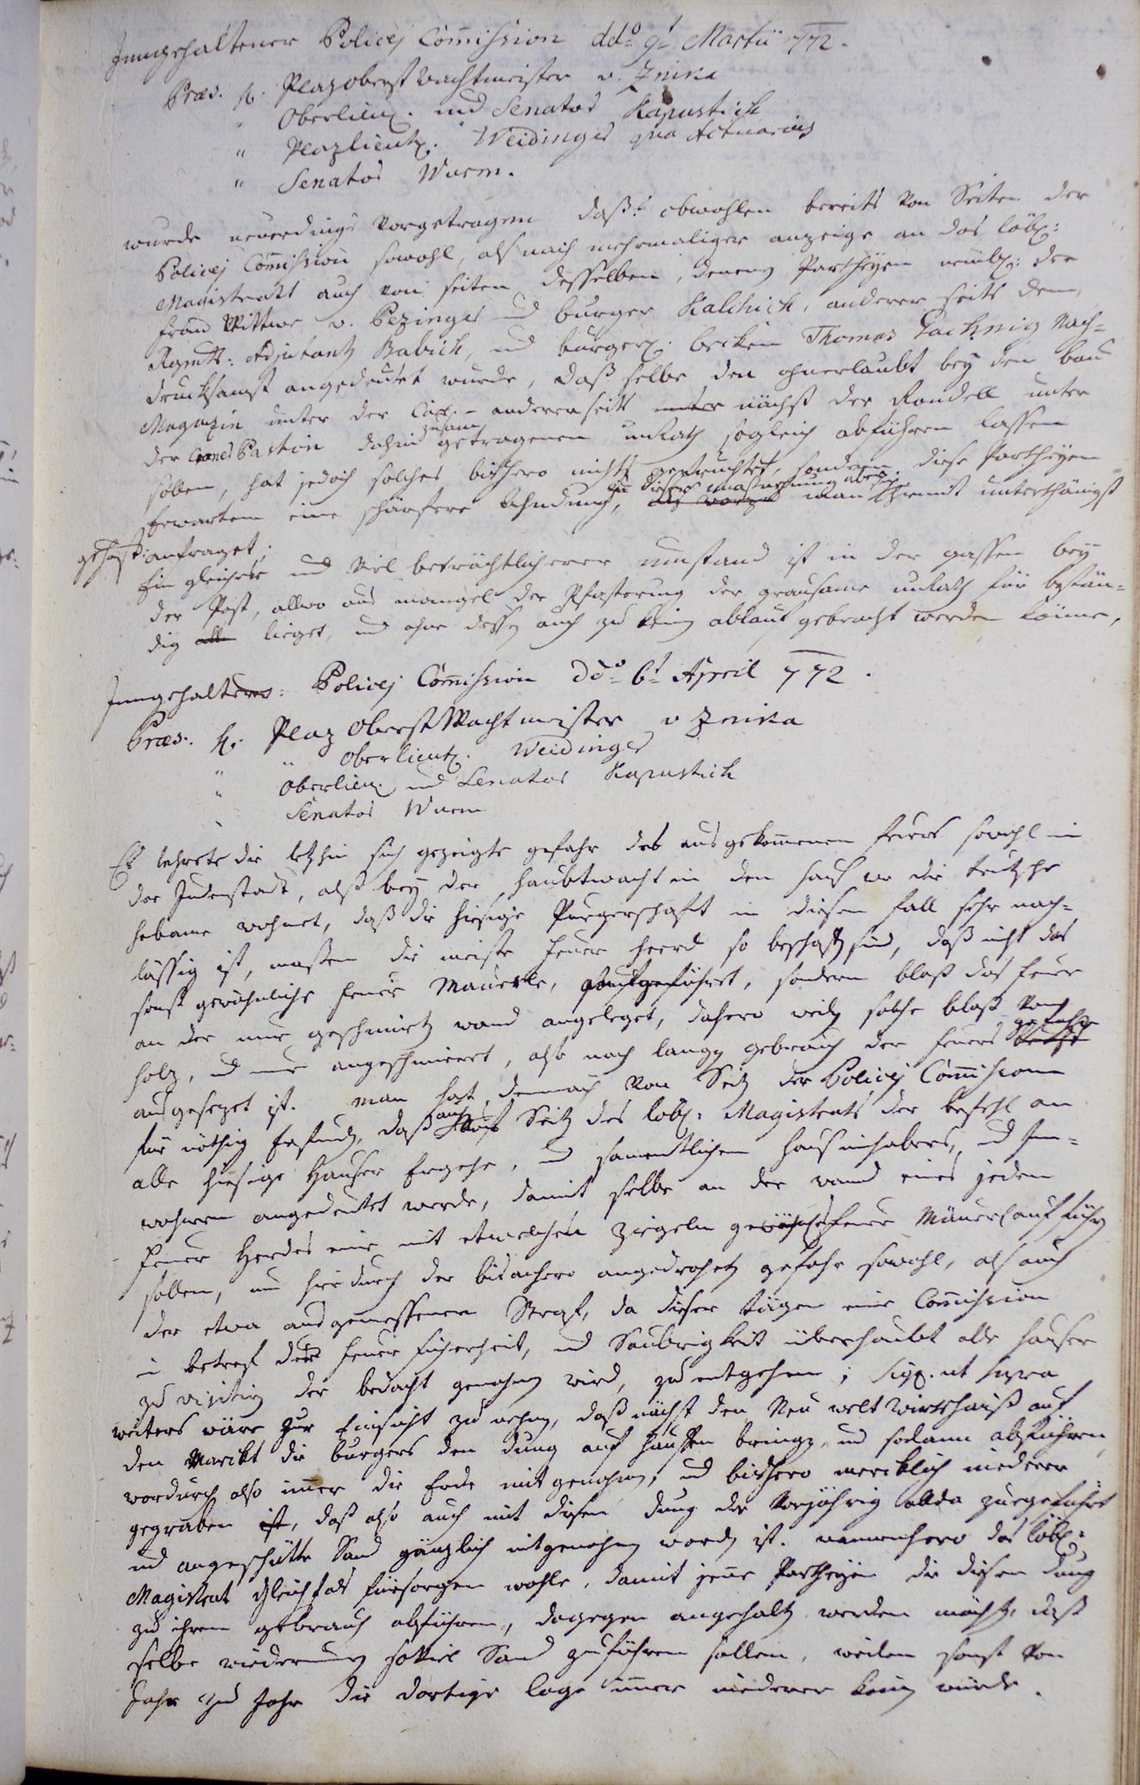 Inngehaltener Policej Commission ddo 9t Martii 772.
Præs. H. Plazoberstwachtmeister v. Znika
" Oberlieut. und Senator Kapustich
" Plazlieut. Weidinger qua Actuarius
" Senator Wurm.
wurde neuerdings vorgetragen daß: obwohlen bereits von Seiten der
Policej Commission sowohl, als nach mehrmaliger anzeige an das löbl:
Magistrat auch von seiten desselben, denen Partheyen nembl: der
Frau Wittwe v. Pezinger und burger Kalchich, anderer seits dem
Regmts: Adjutanten Babich, und bürgerl. becken Thomas Nach=
drucksamst angedeutet wurde, daß selbe den ohnerlaubt bey den bau
Magazin unter der - andererseits nächst der Rondell unter
der Bastion dahin zusam getragenen unrath sogleich abführen lassen
sollen, hat jedoch solches bishero nichts gefruchtet, sondern diese Partheyen
erwarten eine schärfere Ahndung, zu dieser man hiemit unterthänigst
gehorst: anfraget;
Ein gleicher und viel beträchtlicherer umstand ist in der gassen beÿ
der Post, allwo aus mangel der Pflasterung der grausame unrath für bestän=
dig lieget, und ohne dessen auch zu kein ablauf gebracht werden könne,
Inngehaltener: Policej Commission ddo 6t April 772.
Præs: H. Plaz Oberst Wachtmeister v Znika
" " Oberlieut. Weidinger
" Oberlieu. und Senator Kapustich
" Senator Wurm
Es lehrete die letzhin sich gezeigte gefahr des ausgekommenen feuers sowohl in
der Judenstadt, als beÿ der Haubtwacht in dem hauß wo die teutsche
hebame wohnet, daß die hiesige Burgerschaft in diesem fall sehr nach=
lässig ist, massen die meiste feuer heerd so beschaffen sind, daß nicht das
sonst gewöhnliche feuer Mäuerle, aufgeführet, sondern bloß das feuer
an der nur geschmierten wand angeleget, dahero weilen solche bloß von
holz, und nur angeschmieret, also nach langen gebrauch der feuers gefahr
ausgesezet ist. man hat demnach von Seiten der Policej Commission
für nöthig befunden, daß auch Seiten des löbl: Magistrats der befehl an
alle hiesige Häuser ergehe, und samentlichen hausinhabern, und Inn=
wohnern angedeutet werde, damit selbe an der wand eines jeden
feuer Heerdes eine mit etwelchen ziegeln feuer Mäuerl aufführen
sollen, um hiedurch der bisachero angedroheten gefahr sowohl, als auch
der etwa ausgemessenen Straf, da dieser tägen eine Commission
in betref der feuer sicherheit, und Saubrigkeit überhaubt alle häuser
zu visitiren der bedacht genohmen wird, zu entgehen; sign. ut supra
weiters wäre zur Einsicht zu nehmen, daß nächst den Neu welt Wirtshauß auf
den Markt die burgers den dung auf hauffen bringen, und sodann abführen,
wordurch also immer die Erde mitgenohmen, und bishero mercklich niederer
gegraben ist, daß also auch mit diesem dung der vorjährig allda zuegeführt
und angeschütte Sand gänzlich mitgenohmen worden ist. wannenhero das löbl:
Magistrat gleichfals fürsorgen wolle, damit jene Partheyen die diesen dung
zu ihrem gebrauch abführen, dagegen angehalten werden möchten, daß
selbe wiederumb soviel Sand zuführen sollen, weilen sonst von
Jahr zu Jahr die dortige lage immer niederer komen würde.